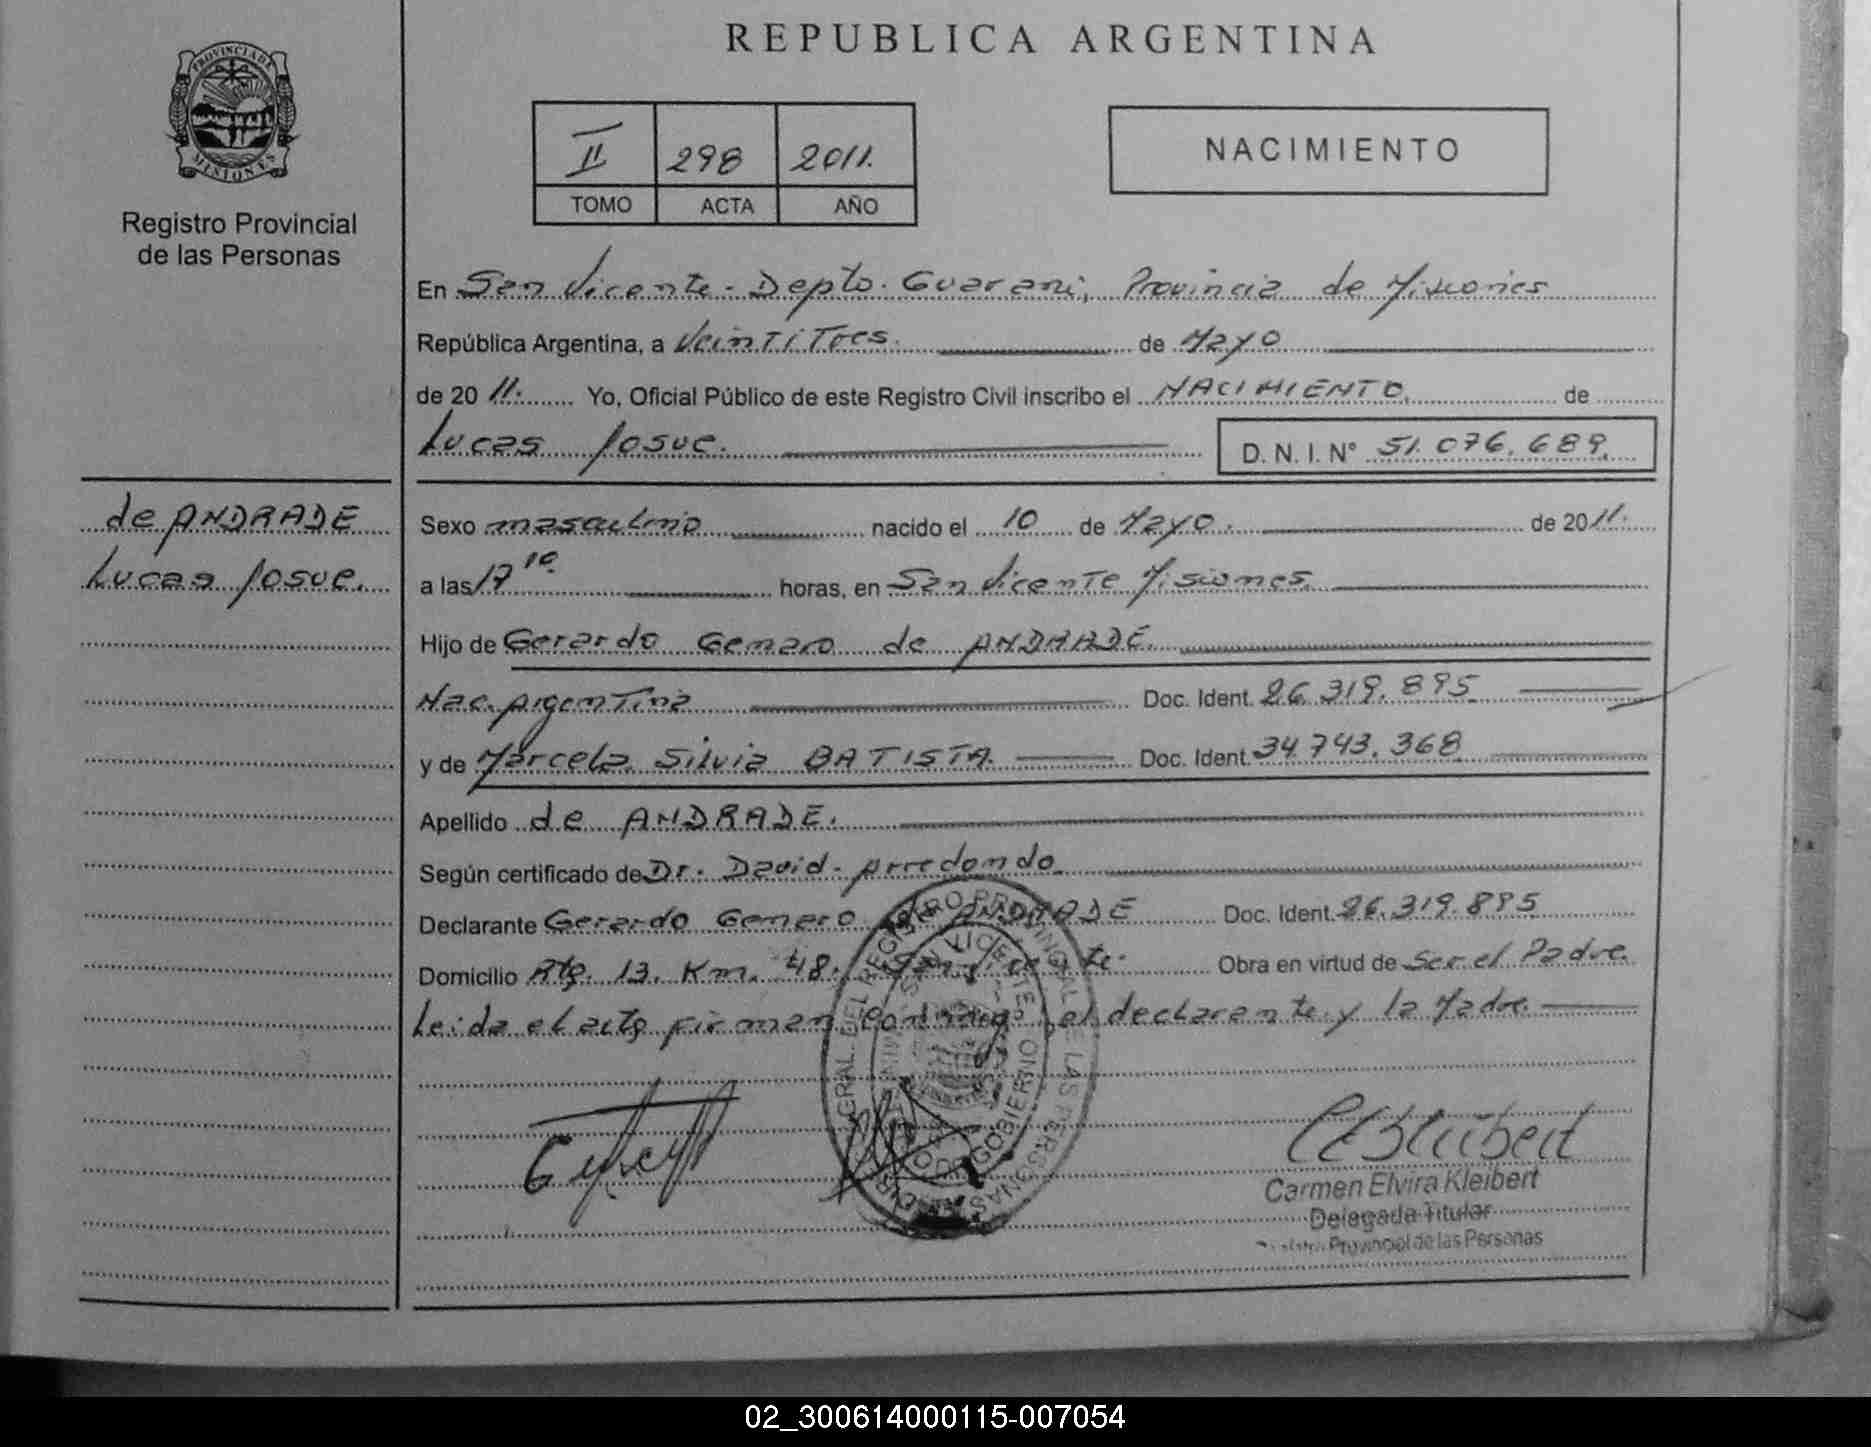 REPUBLICA ARGENTINA
PROVINCIA DE
MISIONES
Registro Provincial
de las Personas
II 298 2011.
TOMO ACTA AÑO
NACIMIENTO
En San Vicente - Depto. Guarani, Provincia de Misiones
República Argentina, a Veintitres. de Mayo
de 20 11. Yo, Oficial Público de este Registro Civil inscribo el NACIMIENTO. de
Lucas Josue. D. N. I. N° 51.076.689.
de ANDRADE
Lucas Josue.
Sexo masculino nacido el 10 de Mayo. de 2011.
a las 17 10. horas, en San Vicente Misiones.
Hijo de Gerardo Genaro de ANDRADE.
Nac. Argentina Doc. Ident. 26.319.895
y de Marcela Silvia BATISTA. Doc. Ident. 34.743.368
Apellido de ANDRADE.
Según certificado de Dr. David Arredondo.
Declarante Gerardo Genaro de ANDRADE Doc. Ident. 26.319.895
Domicilio Rta. 13. Km. 48. San Vicente. Obra en virtud de Ser el Padre.
Leida el acta firman conmigo el declarante y la Madre.
Carmen Elvira Kleibert
Delegada Titular
Provincial de las Personas
02_300614000115-007054